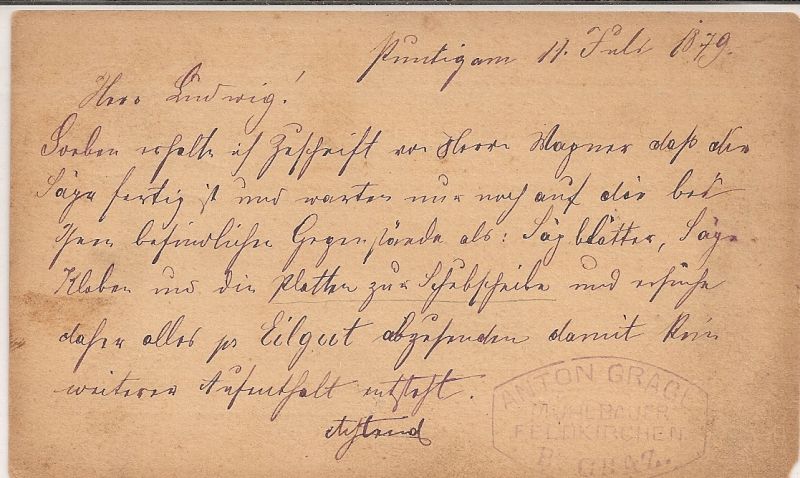 Puntigam 11. Juli 1879.
Herr Ludwig!
Soeben erhalte ich Zuschrift von Herrn Wagner daß die
Säge fertig ist und warten nur noch auf die bei
Ihnen befindlichen Gegenstände als: Sägblätter, Säge
Kloben und die Platten zur Schubscheibe und ersuche
daher alles pr Eilgut abzusenden damit kein
weiterer Aufenthalt entsteht.
Achtend
ANTON GRABL
MÜHLBAUER
FELDKIRCHEN
B. GRAZ.